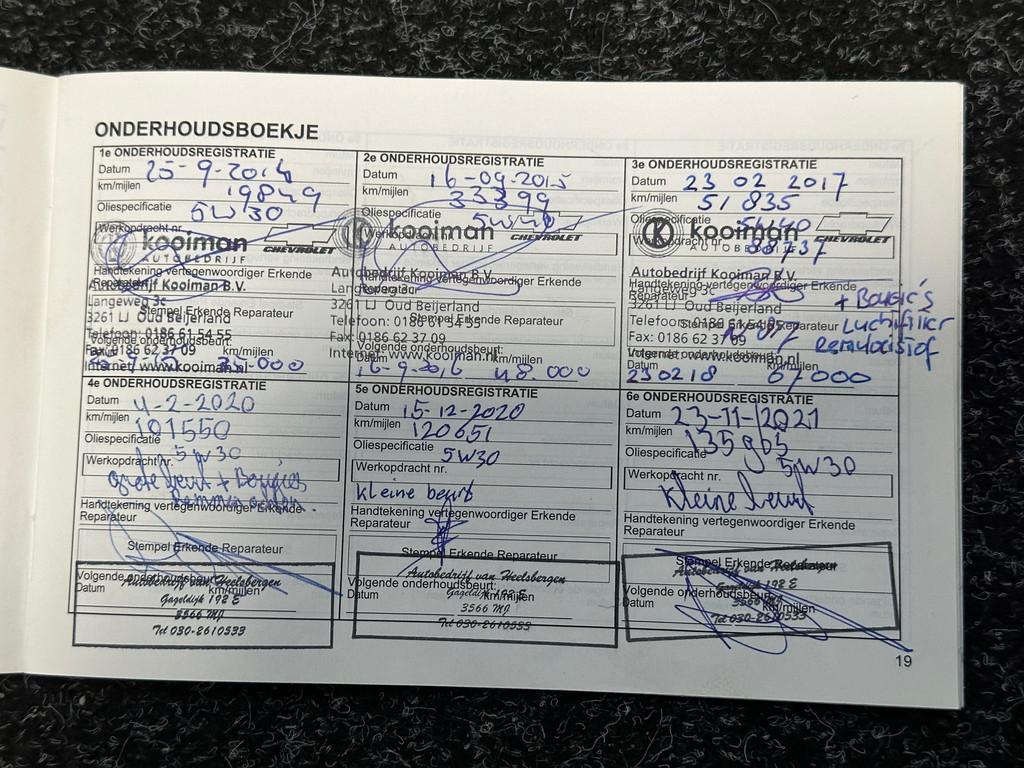 ONDERHOUDSBOEKJE
1e ONDERHOUDSREGISTRATIE
Datum 25-9-2014
km/mijlen 19849
Oliespecificatie 5W30
Werkopdracht nr.
kooiman CHEVROLET
AUTOBEDRIJF
Handtekening vertegenwoordiger Erkende
Reparateur
Autobedrijf Kooiman B.V.
Langeweg 3c
Stempel Erkende Reparateur
3261 LJ Oud Beijerland
Telefoon: 0186 61 54 55
Volgende onderhoudsbeurt:
Fax: 0186 62 37 09
Datum km/mijlen
Internet: www.kooiman.nl
2e ONDERHOUDSREGISTRATIE
Datum 16-09-2015
km/mijlen 33399
Oliespecificatie
Werkopdracht nr.
kooiman CHEVROLET
AUTOBEDRIJF
Autobedrijf Kooiman B.V.
Handtekening vertegenwoordiger Erkende
Reparateur
Langeweg 3c
3261 LJ Oud Beijerland
Stempel Erkende Reparateur
Telefoon: 0186 61 54 55
Fax: 0186 62 37 09
Volgende onderhoudsbeurt:
Internet: www.kooiman.nl
Datum km/mijlen
16-9-2016 48.000
3e ONDERHOUDSREGISTRATIE
Datum 23 02 2017
km/mijlen 51835
Oliespecificatie
Werkopdracht nr. 88737
kooiman CHEVROLET
AUTOBEDRIJF
Autobedrijf Kooiman B.V.
Handtekening vertegenwoordiger Erkende
Reparateur
Langeweg 3c
3261 LJ Oud Beijerland
Telefoon: 0186 61 54 55
Stempel Erkende Reparateur
Fax: 0186 62 37 09
Volgende onderhoudsbeurt:
Internet: www.kooiman.nl
230218 67000
+ Bougie's
Luchtfilter
Remvloeistof
4e ONDERHOUDSREGISTRATIE
Datum 4-2-2020
km/mijlen 101550
Oliespecificatie
5w30
Werkopdracht nr.
Grote beurt + Bougies
Handtekening vertegenwoordiger Erkende
Reparateur
Stempel Erkende Reparateur
Volgende onderhoudsbeurt:
Datum km/mijlen
Autobedrijf van Heelsbergen
Gageldijk 192 E
3566 MJ
Tel 030-2610533
5e ONDERHOUDSREGISTRATIE
Datum 15-12-2020
km/mijlen 120651
Oliespecificatie
5W30
Werkopdracht nr.
kleine beurt
Handtekening vertegenwoordiger Erkende
Reparateur
Stempel Erkende Reparateur
Volgende onderhoudsbeurt:
Datum km/mijlen
Autobedrijf van Heelsbergen
Gageldijk 192 E
3566 MJ
Tel 030-2610533
6e ONDERHOUDSREGISTRATIE
Datum 23-11-2021
km/mijlen 135965
Oliespecificatie
5W30
Werkopdracht nr.
kleine beurt
Handtekening vertegenwoordiger Erkende
Reparateur
Stempel Erkende Reparateur
Volgende onderhoudsbeurt:
Datum km/mijlen
Autobedrijf van Heelsbergen
Gageldijk 192 E
3566 MJ
Tel 030-2610533
19